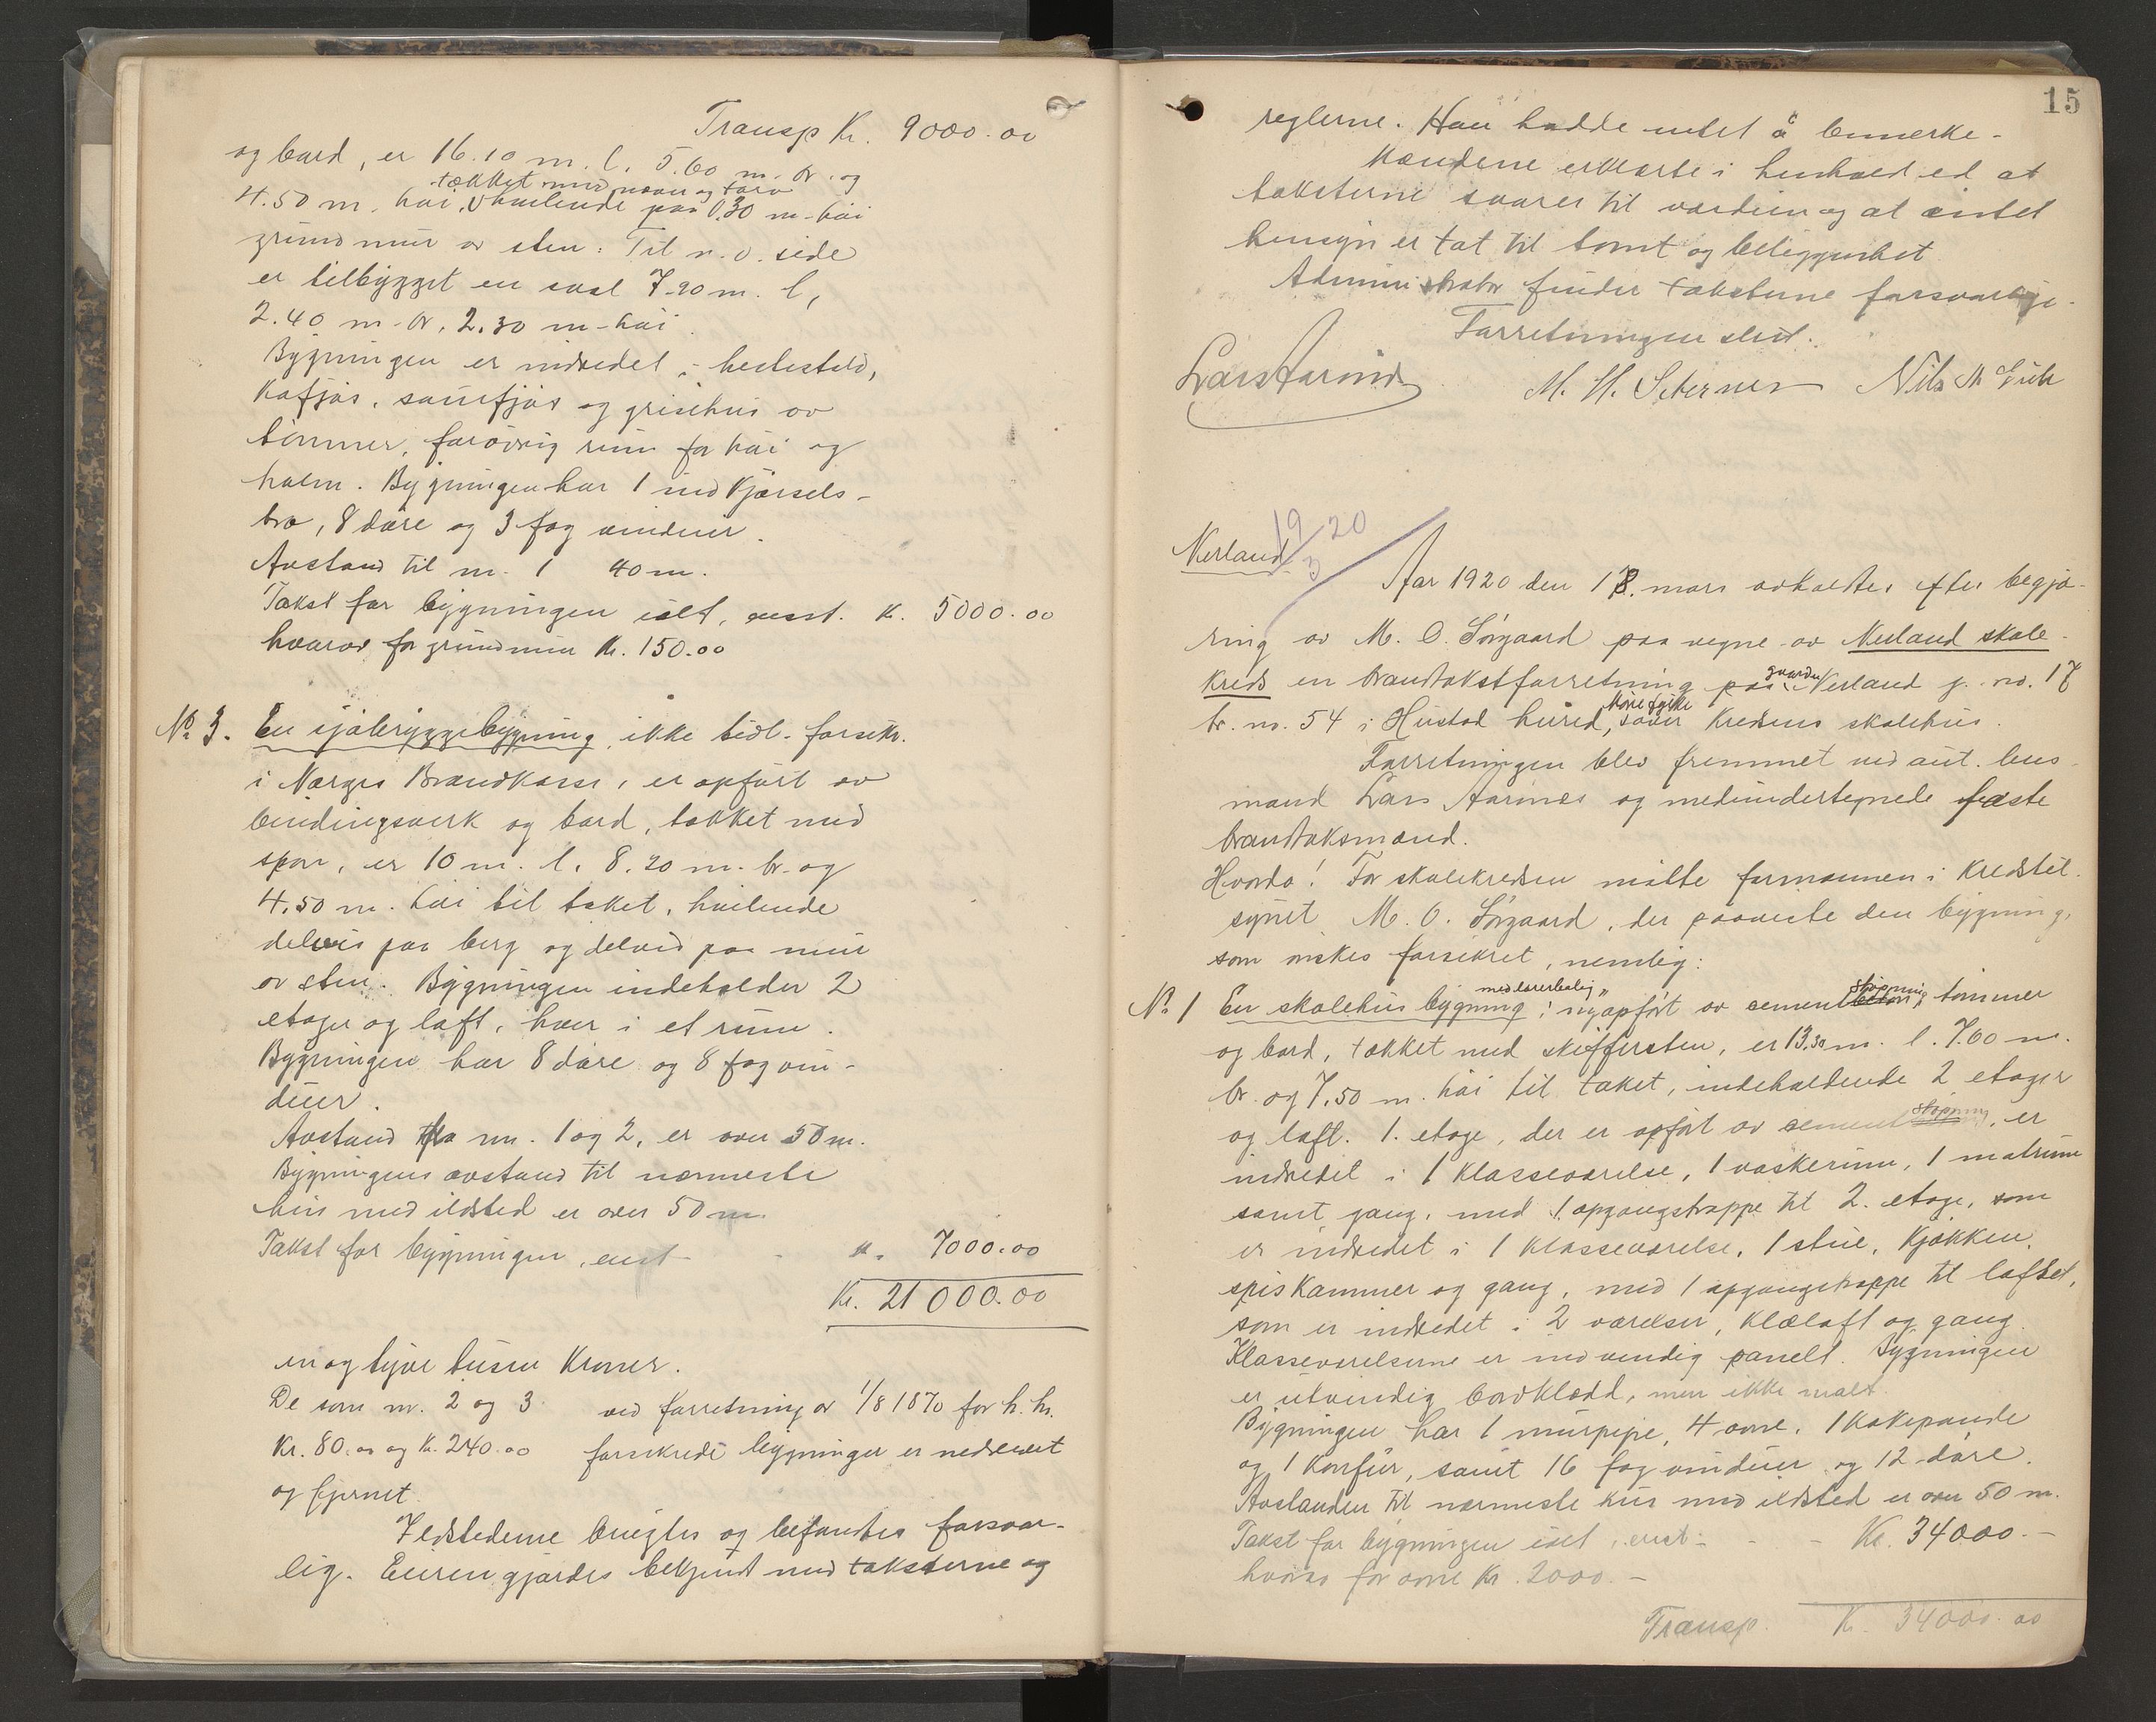 Transp Kr. 9000.00
og bord, er 16.10 m. l. 5.60 m. br. og
tækket med næver og torv
4.50 m. høi, hvilende paa 0.30 m. høi
grundmur av sten. Til n.o. side
er tilbygget en sval 7.20 m. l,
2.40 m. br. 2.30 m. høi.
Bygningen er indredet i hestestald,
kofjøs, sauefjøs og grisehus av
tømmer, forøvrig rum for høi og
halm. Bygningen har 1 indkjørsels-
bro, 8 døre og 3 fag vinduer.
Avstand til nr. 1 40 m.
Takst for bygningen ialt, enst. Kr. 5000.00
hvorav for grundmur Kr. 150.00
No 3. En sjøbryggebygning, ikke tidl. forsikr.
i Norges Brandkasse, er opført av
bindingsverk og bord, tækket med
spon, er 10 m. l. 8.20 m. br. og
4.50 m. høi til taket, hvilende
delvis paa berg og delvis paa mur
av sten. Bygningen indeholder 2
etager og loft, hver i et rum.
Bygningen har 8 døre og 8 fag vin-
duer.
Avstand fra nr. 1 og 2, er over 50 m.
Bygningens avstand til nærmeste
hus med ildsted er over 50 m.
Takst for bygningen, enst - - Kr. 7000.00
Kr. 21000.00
en og tyve tusen Kroner.
De som nr. 2 og 3 ved forretning av 1/8 1870 for h. hv.
Kr. 80.00 og Kr. 240.00 forsikrede bygninger er nedrevet
og fjernet.
Ildstederne besigtes og befandtes forsvar-
lig. Eieren gjordes bekjendt med taksterne og
15
reglerne. Han hadde intet å bemerke.
Mændene erklærte i henhold ed at
taksterne svarer til værdien og at intet
hensyn er tat til tomt og beliggenhet.
Administrator finder taksterne forsvarlige.
Forretningen slut.
Lars Aarnes M. H. Nils M
Nerland 19/3 20
Aar 1920 den 18. mars avholdtes efter begjæ-
ring av M. O. Sørgaard paa vegne av Nerland skole-
kreds en brandtakstforretning paa gaarden Nerland g. no. 17
br. no. 54 i Hustad herred, Møre fylke over kredsens skolehus.
Forretningen blev fremmet ved aut. lens-
mand Lars Aarnes og medundertegnede faste
brandtaksmænd.
Hvorda! For skolekredsen møtte formannen i Kredstil-
synet M. O. Sørgaard, der paaviste den bygning,
som ønskes forsikret, nemlig:
med lærerbolig støpning
No 1 En skolehusbygning, nyopført av cement tømmer
og bord, tækket med skiffersten, er 13.30 m. l. 7.60 m.
br. og 7.50 m. høi til taket, indeholdende 2 etager
og loft. 1. etage, der er opført av cement støpning, er
indredet i 1 Klasseværelse, 1 vaskerum, 1 matrum
samt gang, med 1 opgangstrappe til 2. etage, som
er indredet i 1 Klasseværelse, 1 stue, Kjøkken,
spiskammer og gang, med 1 opgangstrappe til loftet,
som er indredet i 2 værelser, klæloft og gang.
Klasseværelserne er indvendig panelt. Bygningen
er utvendig bordklædd, men ikke malt.
Bygningen har 1 murpipe, 4 ovne, 1 Kokepande
og 1 Komfur, samt 16 fag vinduer og 12 døre.
Avstanden til nærmeste hus med ildsted er over 50 m.
Takst for bygningen ialt, enst. - - Kr. 34000.-
hvorav for ovne Kr. 2000.-
Transp. Kr. 34000.00